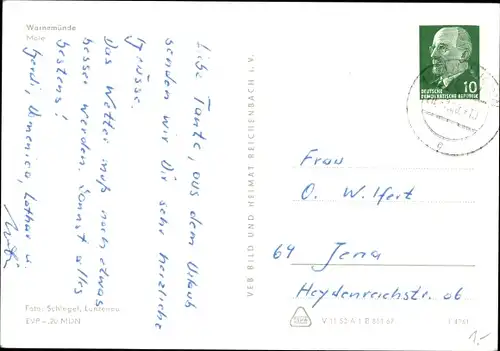 Warnemünde
Mole
Liebe Tante, aus dem Urlaub
senden wir Dir sehr herzliche
Grüsse.
Das Wetter muß noch etwas
besser werden. Sonst alles
bestens!
Gerdi, Lothar u.
Foto: Schlegel,
EVP –.20 MDN
VEB BILD UND HEIMAT REICHENBACH i. V.
10
DEUTSCHE
DEMOKRATISCHE REPUBLIK
Frau
O. Wilfert
64 Jena
Heydenreichstr. 06
1.-